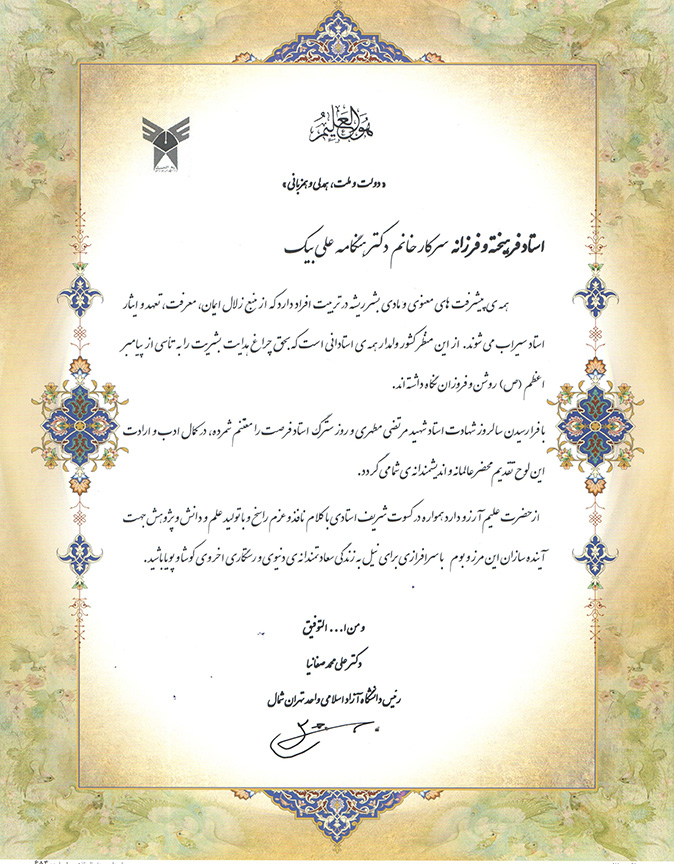 هو العلیم
«دولت و ملت، همدلی و همزبانی»
استاد فریخته و فرزانه سرکار خانم دکتر هنگامه علی بیک
همه ی پیشرفت های معنوی و مادی بشر ریشه در تربیت افراد دارد که از منبع زلال ایمان، معرفت، تعهد و ایثار
استاد سیراب می شوند. از این منظر کشور وامدار همه ی استادانی است که بحق چراغ هدایت بشریت را به تأسی از پیامبر
اعظم (ص) روشن و فروزان نگاه داشته اند.
با فرا رسیدن سالروز شهادت استاد شهید مرتضی مطهری و روز سترگ استاد فرصت را مغتنم شمرده، در کمال ادب و ارادت
این لوح تقدیم محضر عالمانه و اندیشمندانه ی شما می گردد.
از حضرت علیم آرزو دارد همواره در کسوت شریف استادی با کلام نافذ و عزم راسخ و با تولید علم و دانش و پژوهش جهت
آینده سازان این مرز و بوم با سرافرازی برای نیل به زندگی سعادتمندانه ی دنیوی و رستگاری اخروی کوشا و پویا باشید.
و من ا... التوفیق
دکتر علی محمد صفانیا
رئیس دانشگاه آزاد اسلامی واحد تهران شمال